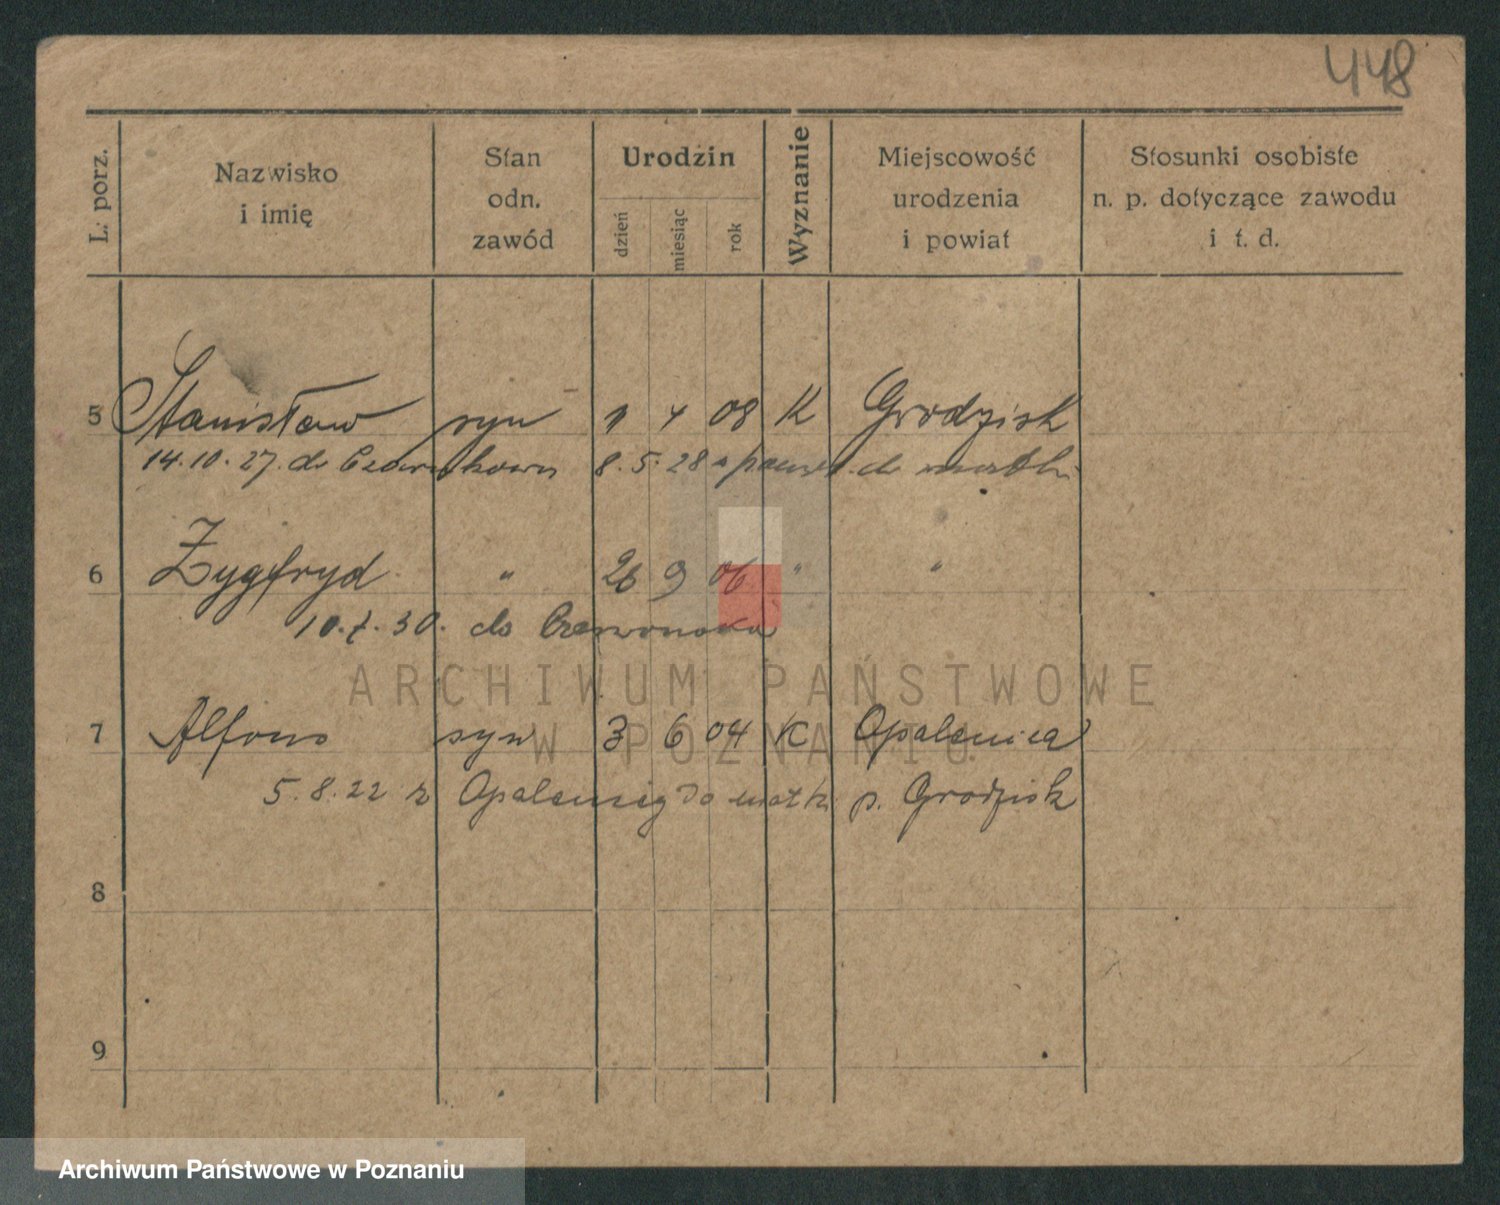 448
L: porz.
Nazwisko
i imię
Stan
odn.
zawód
Urodzin
dzień
miesiąc
rok
Wyznanie
Miejscowość
urodzenia
i powiat
Stosunki osobiste
n. p. dotyczące zawodu
i t. d.
5 Stanisław syn 1 4 08 K Grodzisk
14.10.27. do 8.5.28 do matki
6 Zygfryd " 26 9 06 " "
10.7.30. do Czerwonaka
ARCHIWUM PAŃSTWOWE
W POZNANIU
7 Alfons syn 3 6 04 K Opalenica
5.8.22 z Opalenicy do matki p. Grodzisk
8
9
Archiwum Państwowe w Poznaniu